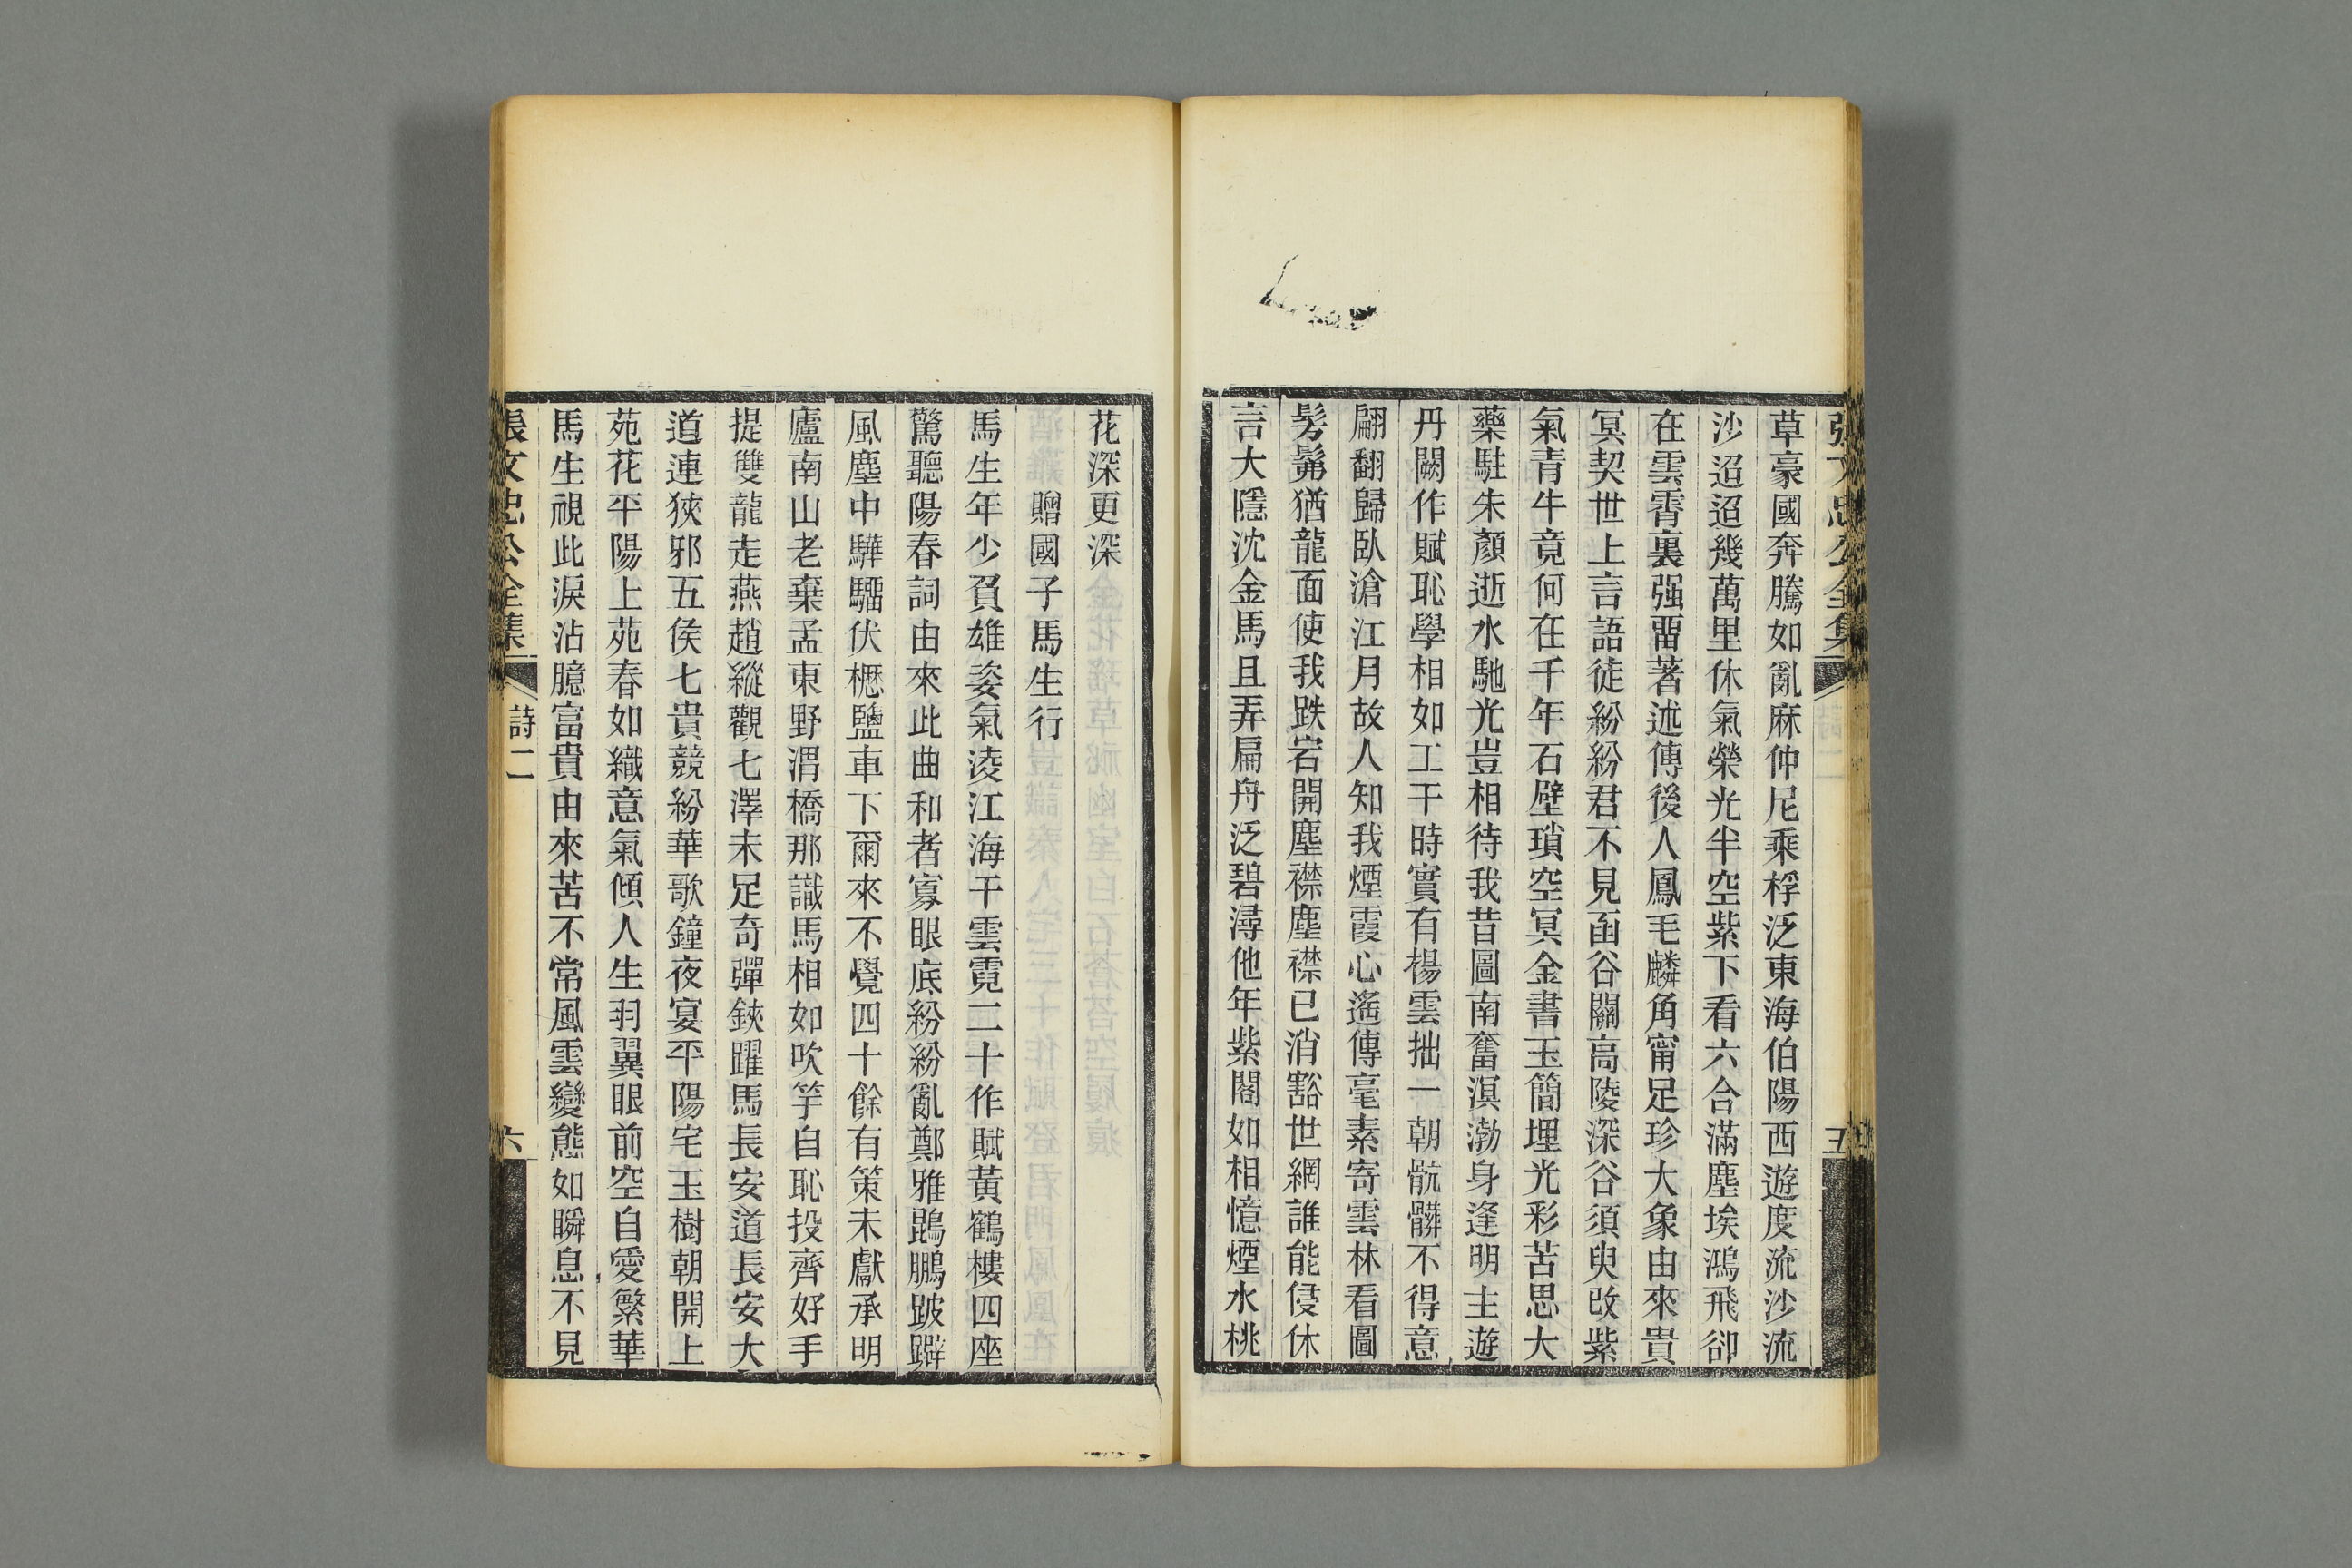 張文忠公全集
五
草豪國奔騰如亂麻仲尼乘桴泛東海伯陽西遊度流沙流
沙迢迢幾萬里休氣榮光半空紫下看六合滿塵埃鴻飛卻
在雲霄裏强畱著述傳後人鳳毛麟角甯足珍大象由來貴
冥契世上言語徒紛紛君不見函谷關高陵深谷須臾改紫
氣青牛竟何在千年石壁瑣空冥金書玉簡埋光彩苦思大
藥駐朱顏逝水馳光豈相待我昔圖南奮溟渤身逢明主遊
丹闕作賦恥學相如工干時實有楊雲拙一朝骯髒不得意
翩翻歸臥滄江月故人知我煙霞心遙傳毫素寄雲林看圖
髣髴猶龍面使我跌宕開塵襟塵襟已消豁世網誰能侵休
言大隱沈金馬且弄扁舟泛碧潯他年紫閣如相憶煙水桃
花深更深
贈國子馬生行
馬生年少負雄姿氣淩江海干雲霓二十作賦黃鶴樓四座
驚聽陽春詞由來此曲和者寡眼底紛紛亂鄭雅鵾鵬跛躃
風塵中驊騮伏櫪鹽車下爾來不覺四十餘有策未獻承明
廬南山老棄孟東野渭橋那識馬相如吹竽自恥投齊好手
提雙龍走燕趙縱觀七澤未足奇彈鋏躍馬長安道長安大
道連狹邪五侯七貴競紛華歌鐘夜宴平陽宅玉樹朝開上
苑花平陽上苑春如織意氣傾人生羽翼眼前空自愛繁華
馬生視此淚沾臆富貴由來苦不常風雲變態如瞬息不見
張文忠公全集
詩二
六